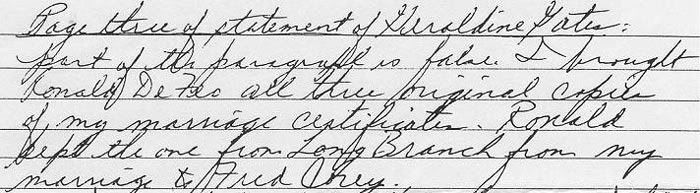 Page three of statement of Geraldine Gates:
part of this paragraph is false. I brought
Ronald DeFeo all three original copies
of my marriage certificates. Ronald
kept the one from Long Branch from my
marriage to Fred